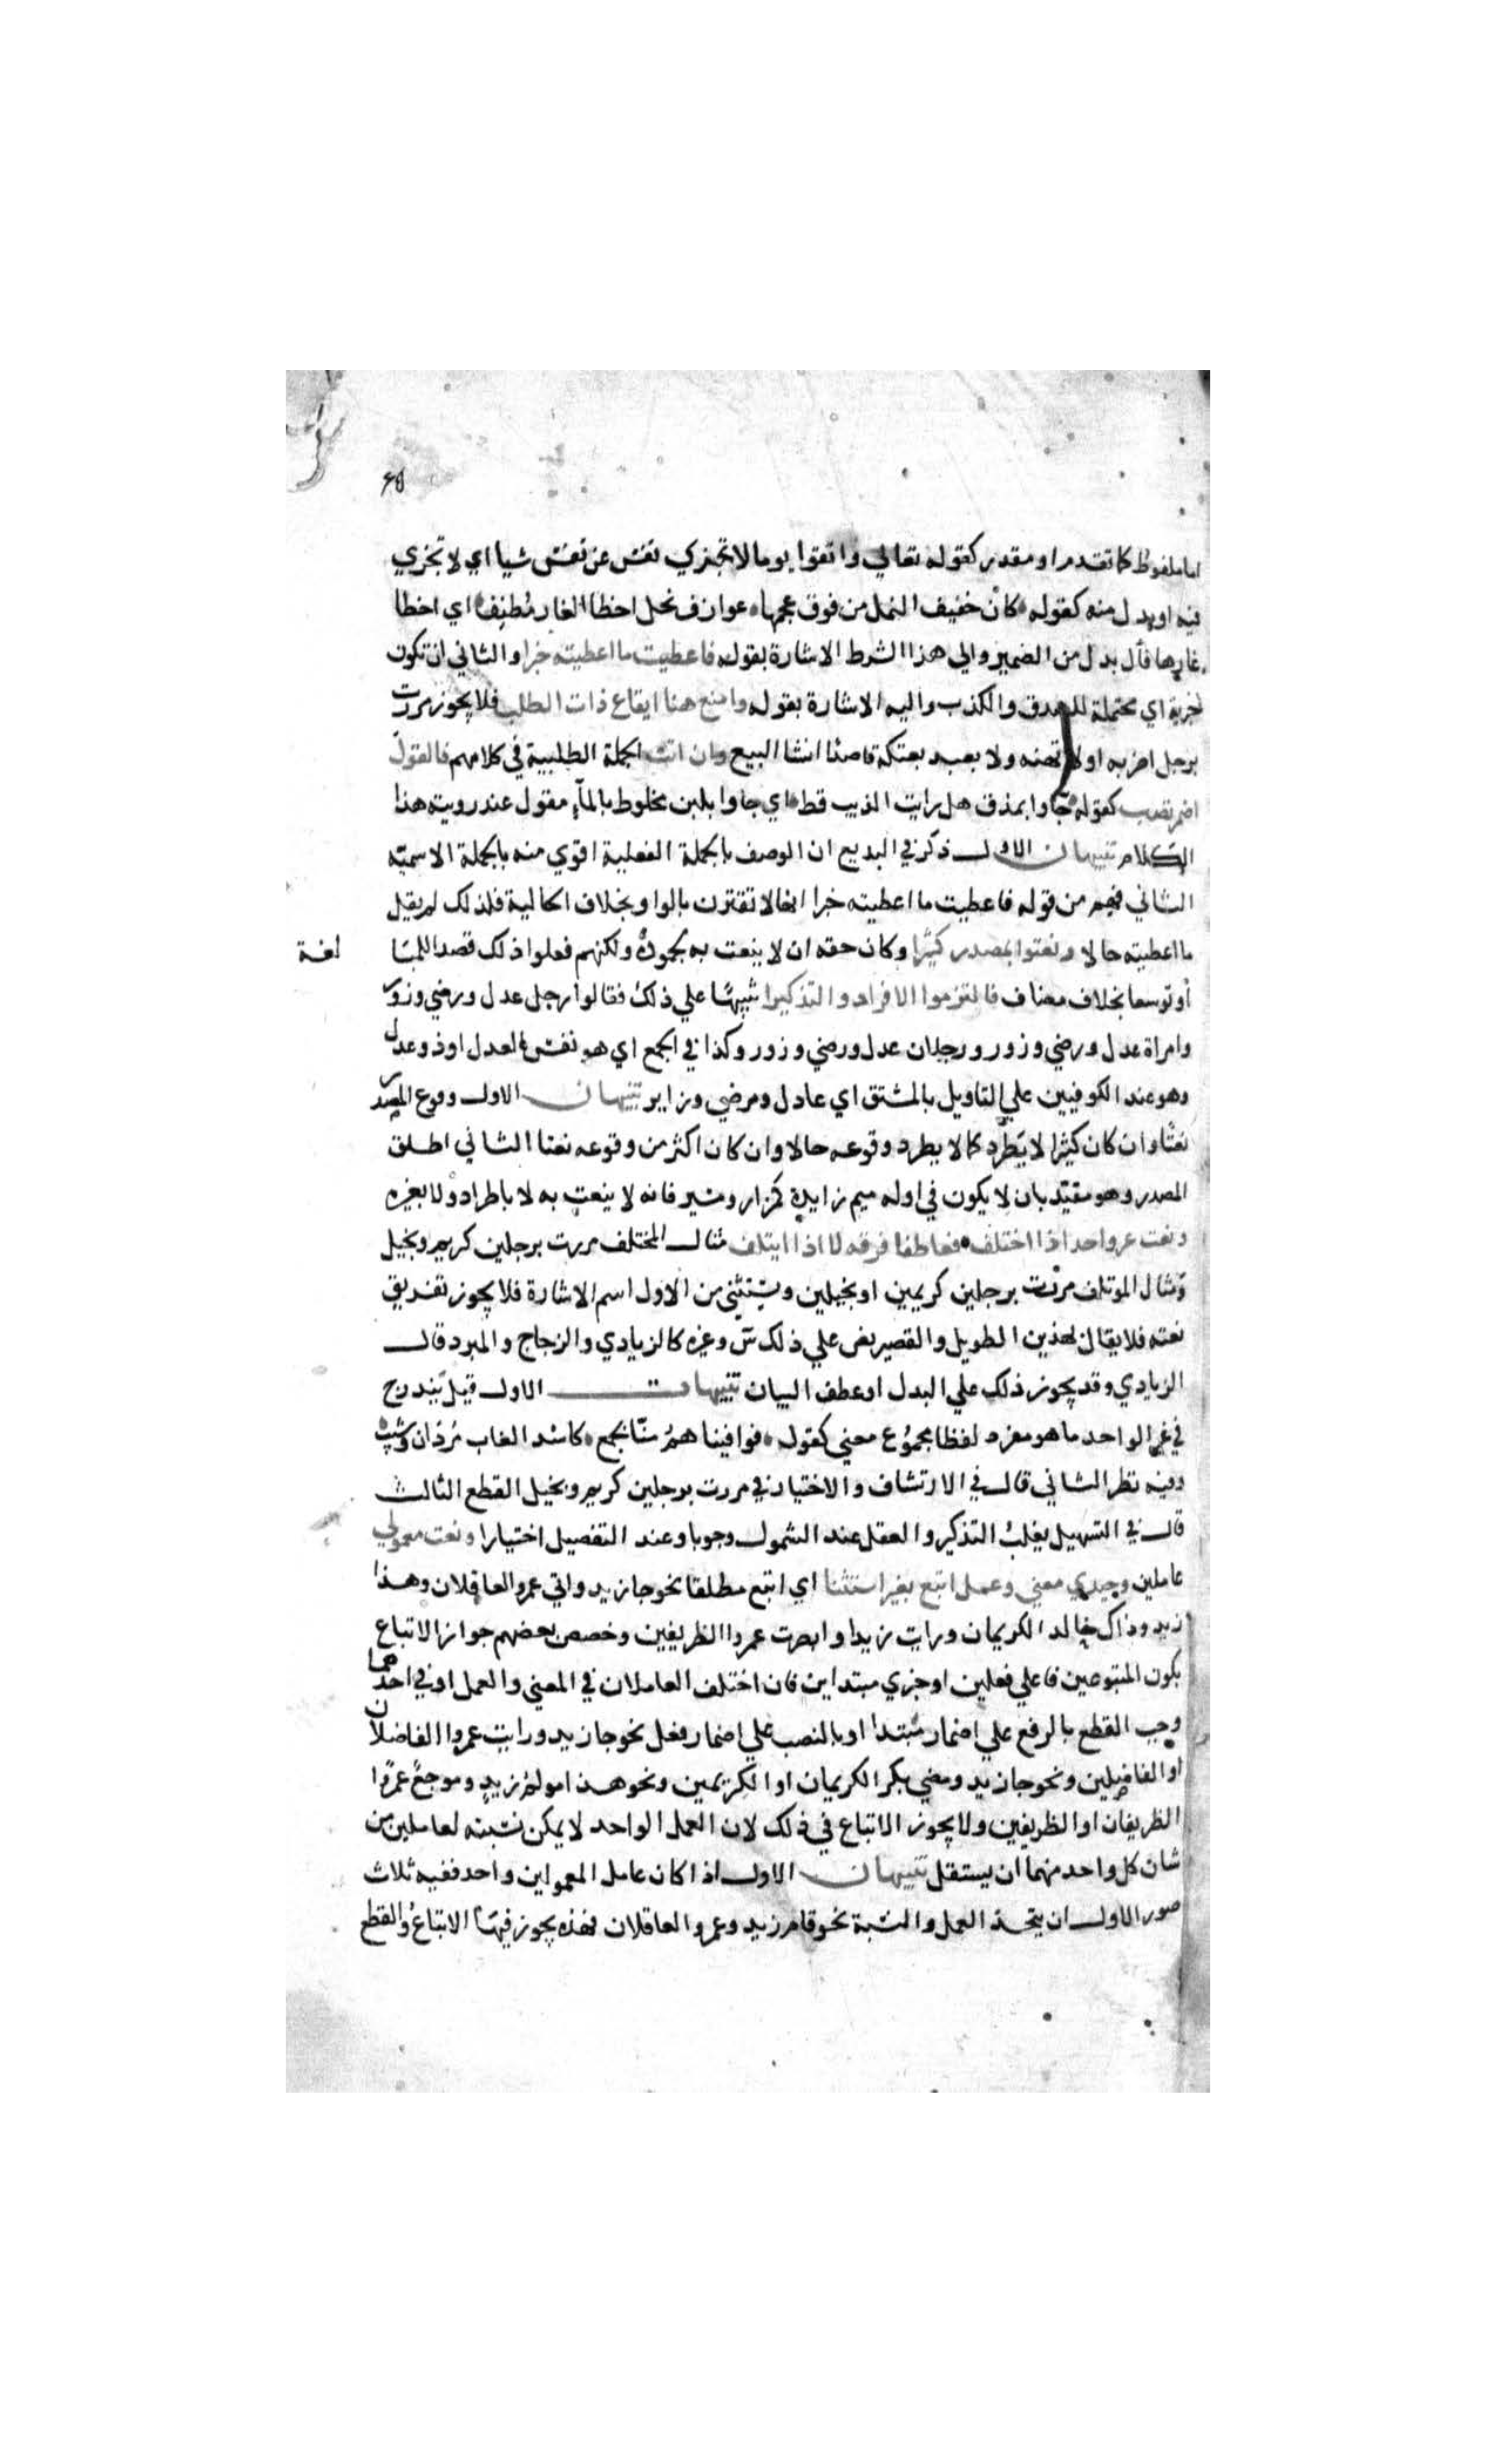 ٤٥
اما ملفوظ كما تقدم او مقدر كقوله تعالي واتقوا يوما لا تجزي نفس عن نفس شيا اي لا تجزي
فيه او بدل منه كقوله كان حفيف النبل من فوق عجسها عوازف نحل اخطا الغار مطنف اي اخطا
غارها فأل بدل من الضمير والي هذا الشرط الاشارة بقوله فاعطيت ما اعطيته خبرا والثاني ان تكون
خبرية اي محتملة للصدق والكذب واليه الاشارة بقوله وامنع هنا ايقاع ذات الطلب فلا يجوز مررت
برجل اضربه اولا تهنه ولا بعبد بعتكه قاصدا انشا البيع وان اتت الجملة الطلبية في كلامهم فالقول
اضمر تصب كقوله جآوا بمذق هل رايت الذيب قط اي جاوا بلبن مخلوط بالمآء مقول عند رويته هذا
الكلام تنبيهان الاول ذكر في البديع ان الوصف بالجملة الفعلية اقوي منه بالجملة الاسمية
الثاني فهم من قوله فاعطيت ما اعطيته خبرا انها لا تقترن بالواو بخلاف الحالية فلذلك لم يقل
ما اعطيته حالا ونعتوا بمصدر كثيرا وكان حقه ان لا ينعت به لجموده ولكنهم فعلوا ذلك قصدا للمبا لغة
أو توسعا بحذف مضاف فالتزموا الافراد والتذكيرا تنبيها علي ذلك فقالوا رجل عدل ورضي وزور
وامراة عدل ورضي وزور ورجلان عدل ورضي وزور وكذا في الجمع اي هو نفس العدل او ذو عدل
وهو عند الكوفيين علي التاويل بالمشتق اي عادل ومرضي وزاير تنبيهان الاول وقوع المصدر
نعتا وان كان كثيرا لا يطرد كما لا يطرد وقوعه حالا وان كان اكثر من وقوعه نعتا الثاني اطلق
المصدر وهو مقيد بان لا يكون في اوله ميم زايدة كمزار ومسير فانه لا ينعت به لا باطراد ولا بغيره
ونعت غير واحد اذا اختلف فعاطفا فرقه لا اذا ايتلف مثال المختلف مررت برجلين كريم وبخيل
ومثال الموتلف مررت برجلين كريمين او بخيلين ويستثني من الاول اسم الاشارة فلا يجوز تفريق
نعته فلا يقال بهذين الطويل والقصير نص علي ذلك س وغيره كالزيادي والزجاج والمبرد قال
الزيادي وقد يجوز ذلك علي البدل او عطف البيان تنبيهات الاول قيل يندرج
في غير الواحد ما هو مفرد لفظا مجموع معني كقوله فوافيناهم منا بجمع كاسد الغاب مردان وشيب
وفيه نظر الثاني قال في الارتشاف والاختيار في مررت برجلين كريم وبخيل القطع الثالث
قال في التسهيل يغلب التذكير والعقل عند الشمول وجوبا وعند التفصيل اختيارا ونعت معمولي
عاملين وحيدي معني وعمل اتبع بغير استثنا اي اتبع مطلقا نحو جا زيد واتي عمرو العاقلان وهذا
زيد وذاك خالد الكريمان ورايت زيدا وابصرت عمروا الظريفين وخصص بعضهم جواز الاتباع
بكون المتبوعين فاعلي فعلين او خبري مبتداين فان اختلف العاملان في المعني والعمل او في احدهما
وجب القطع بالرفع علي اضمار مبتدا او بالنصب علي اضمار فعل نحو جا زيد ورايت عمروا الفاضلان
او الفاضلين ونحو جا زيد ومضي بكر الكريمان او الكريمين ونحو هذا مولم زيد وموجع عمروا
الظريفان او الظريفين ولا يجوز الاتباع في ذلك لان العمل الواحد لا يمكن نسبته لعاملين من
شان كل واحد منهما ان يستقل تنبيهان الاول اذا كان عامل المعمولين واحد ففيه ثلاث
صور الاول ان يتحد العمل والنسبة نحو قام زيد وعمرو العاقلان فهذه يجوز فيها الاتباع والقطع